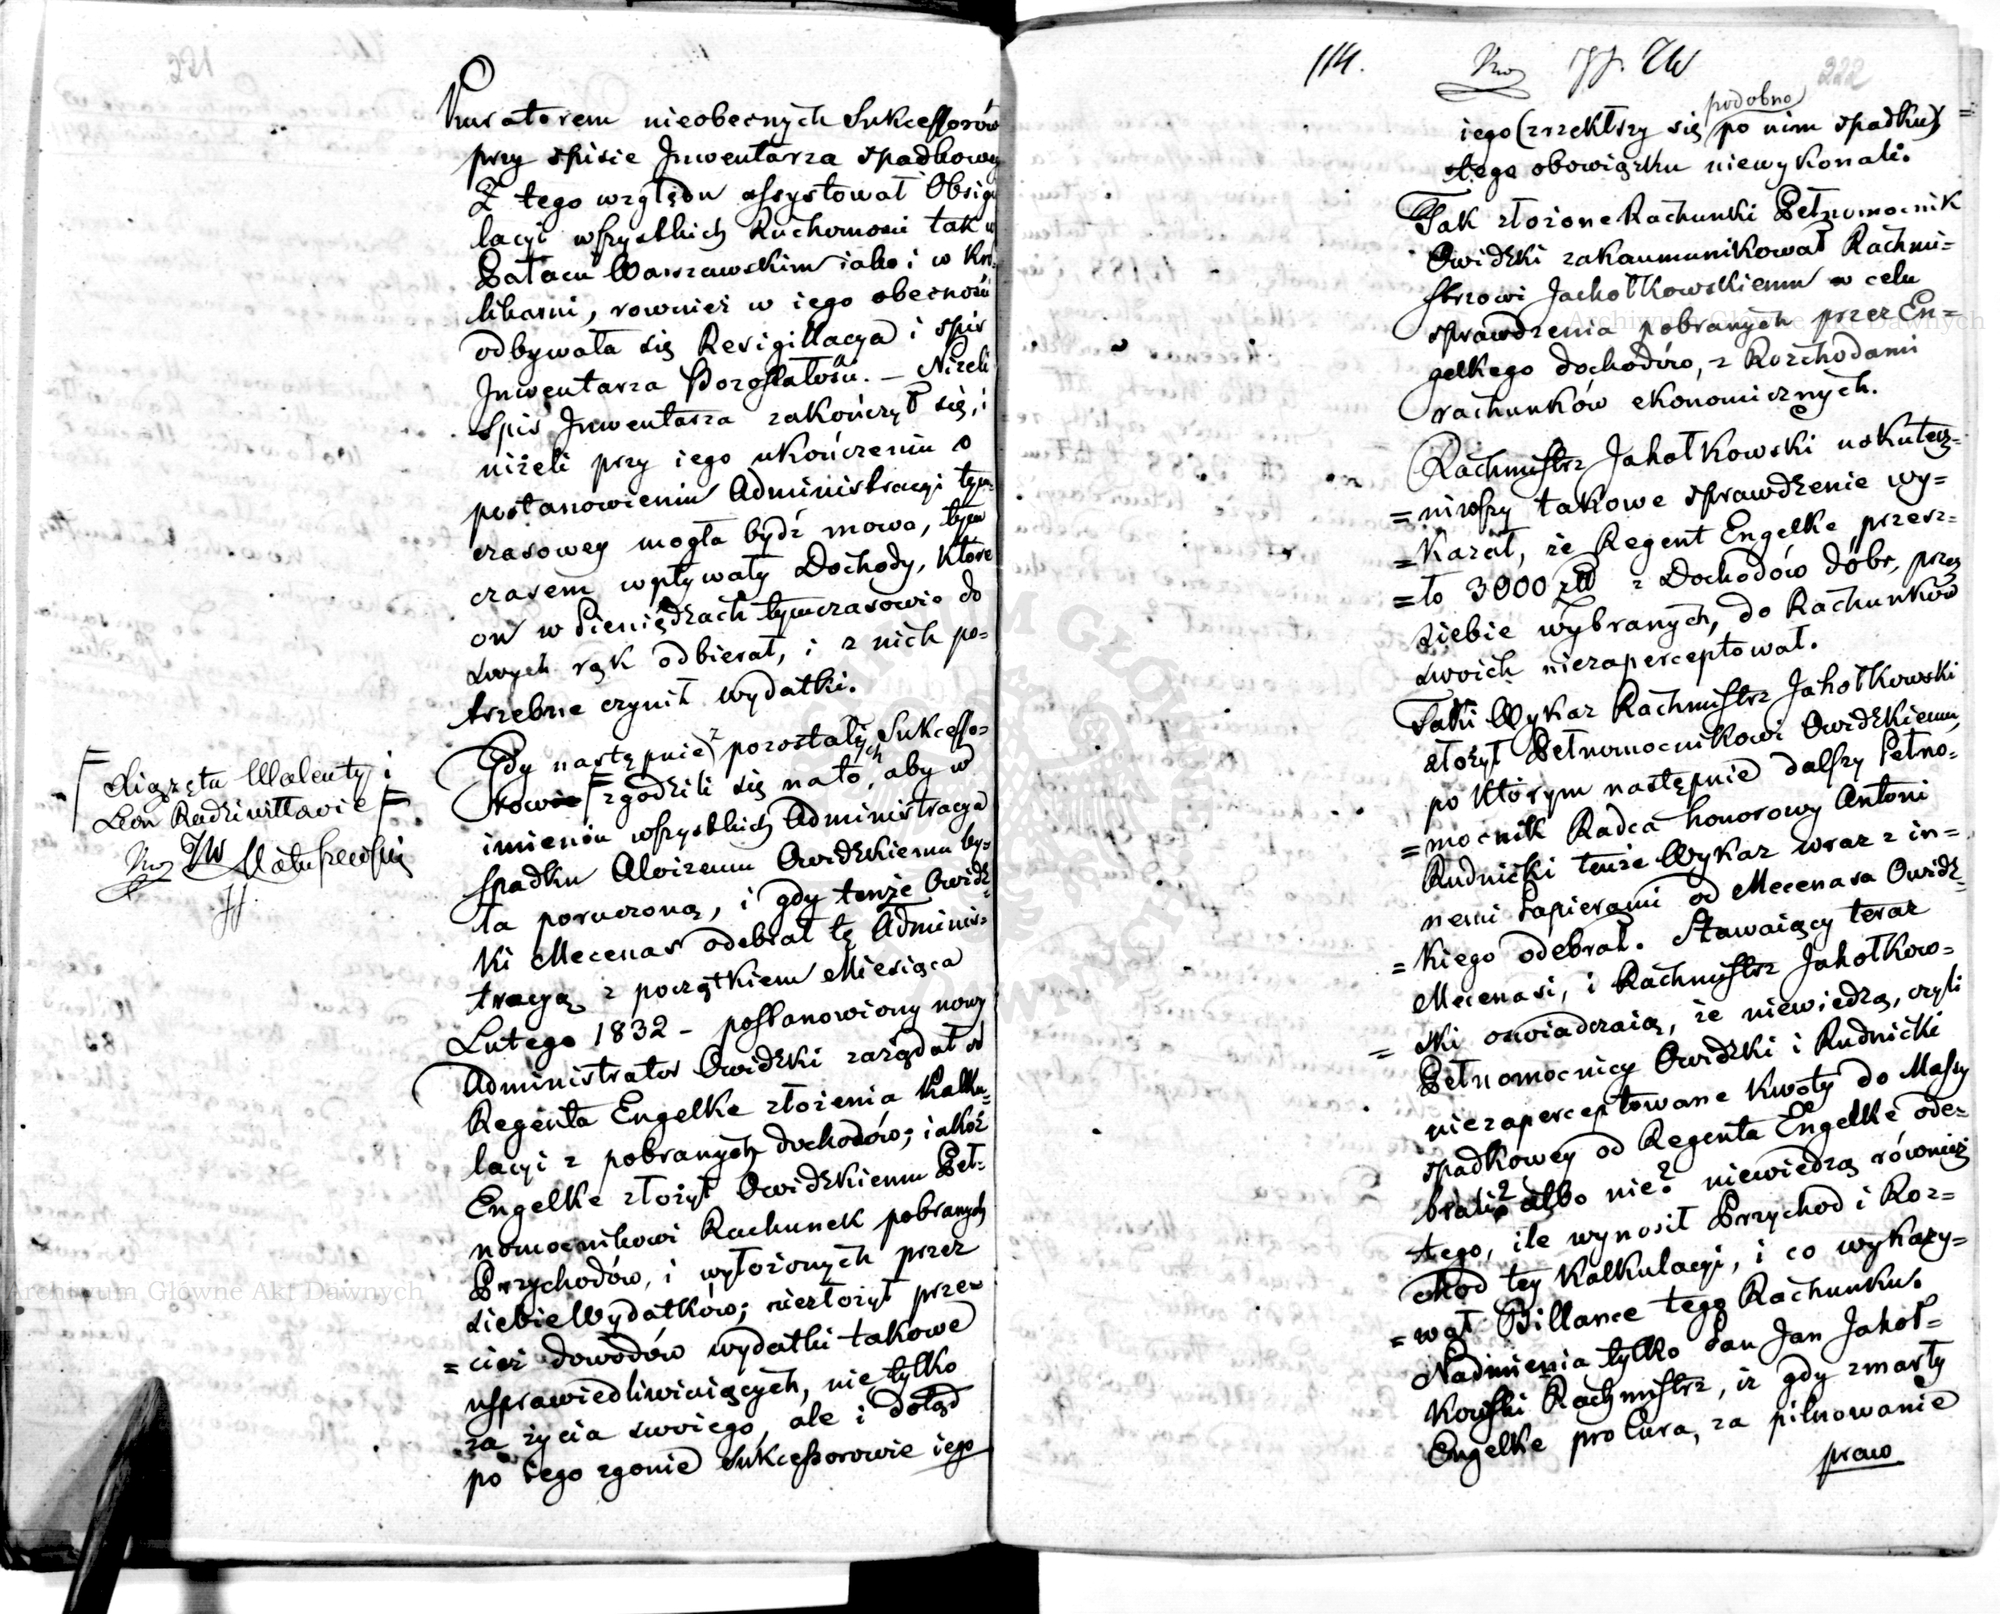 221
Kuratorem nieobecnych Sukcessorów
przy spisie Inwentarza spadkowey
Z tego względu assystował Obsigil
lacyi wszystkich Ruchomości tak w
Pałacu Warszawskim iako i w Kró
likarni, rownież w iego obecności
odbywała się Resigillacya i spis
Inwentarza Pozostałości. – Niżeli
Spis Inwentarza zakończył się, i
niżeli przy iego ukończeniu o
postanowieniu Administracyi tym
czasowey mogła bydź mowa, tym
czasem wpływały Dochody, które
on w Pieniędzach tymczasowie do
swych rąk odbierał, i z nich po=
trzebne czynił wydatki.
Gdy następnie z pozostałych Sukcesso=
rowie zgodzili się na to, aby w
imieniu wszystkich Administracya
spadku Aloizemu Owidzkiemu by=
ła poruczoną, i gdy tenże Owidz=
ki Mecenas odebrał tę Adminis=
tracyą z początkiem Miesiąca
Lutego 1832 – postanowiony nowy
Administrator Owidzki zażądał od
Regenta Engelke złożenia Kalku=
lacyi z pobranych dochodów; iakoż
Engelke złożył Owidzkiemu Peł=
nomocnikowi Rachunek pobranych
Przychodów, i wyłożonych przez
siebie Wydatków; niezłożył prze=
=cież dowodów wydatki takowe
usprawiedliwiaiących, nie tylko
za życia swoiego, ale i dotąd
po iego zgonie Sukcessorowie iego
Xiążęta Walenty i
Leon Radziwiłłowie
JW Matuszewski
114. JJ. JW
222
podobno
iego (zrzekłszy się po nim spadku) =
tego obowiązku niewykonali.
Tak złożone Rachunki Pełnomocnik
Owidzki zakommunikował Rachmi=
strzowi Jachołkowskiemu w celu
sprawdzenia pobranych przez En=
gelkego dochodów, z Rozchodami
rachunków ekonomicznych.
Rachmistrz Jahołkowski uskutecz=
=niwszy takowe sprawdzenie wy=
=kazał, że Regent Engelke przesz=
=ło 3000 zł z Dochodów dóbr, przez
siebie wybranych, do Rachunków
swoich niezaperceptował.
Taki Wykaz Rachmistrz Jahołkowski
złożył Pełnomocnikowi Owidzkiemu,
po którym następnie dalszy Pełno=
=mocnik Radca honorowy Antoni
Rudnicki tenże Wykaz wraz z in=
nemi Papierami od Mecenasa Owidz=
=kiego odebrał. Stawaiący teraz
Mecenasi, i Rachmistrz Jahołkow=
= ski oswiadczaią, że niewiedzą, czyli
Pełnomocnicy Owidzki i Rudnicki
niezaperceptowane kwoty do Massy
spadkowey od Regenta Engelke ode=
brali? albo nie? niewiedzą równiesz
tego, ile wynosił Przychod i Roz=
chod tey Kalkulacyi, i co wykazy=
=wał Billance tego Rachunku.
Nadmienia tylko Pan Jan Jahoł=
kowski Rachmistrz, iż gdy zmarły
Engelke pro Cura, za pilnowanie
praw
Archiwum Główne Akt Dawnych
Archiwum Główne Akt Dawnych
ARCHIWUM GŁÓWNE AKT DAWNYCH